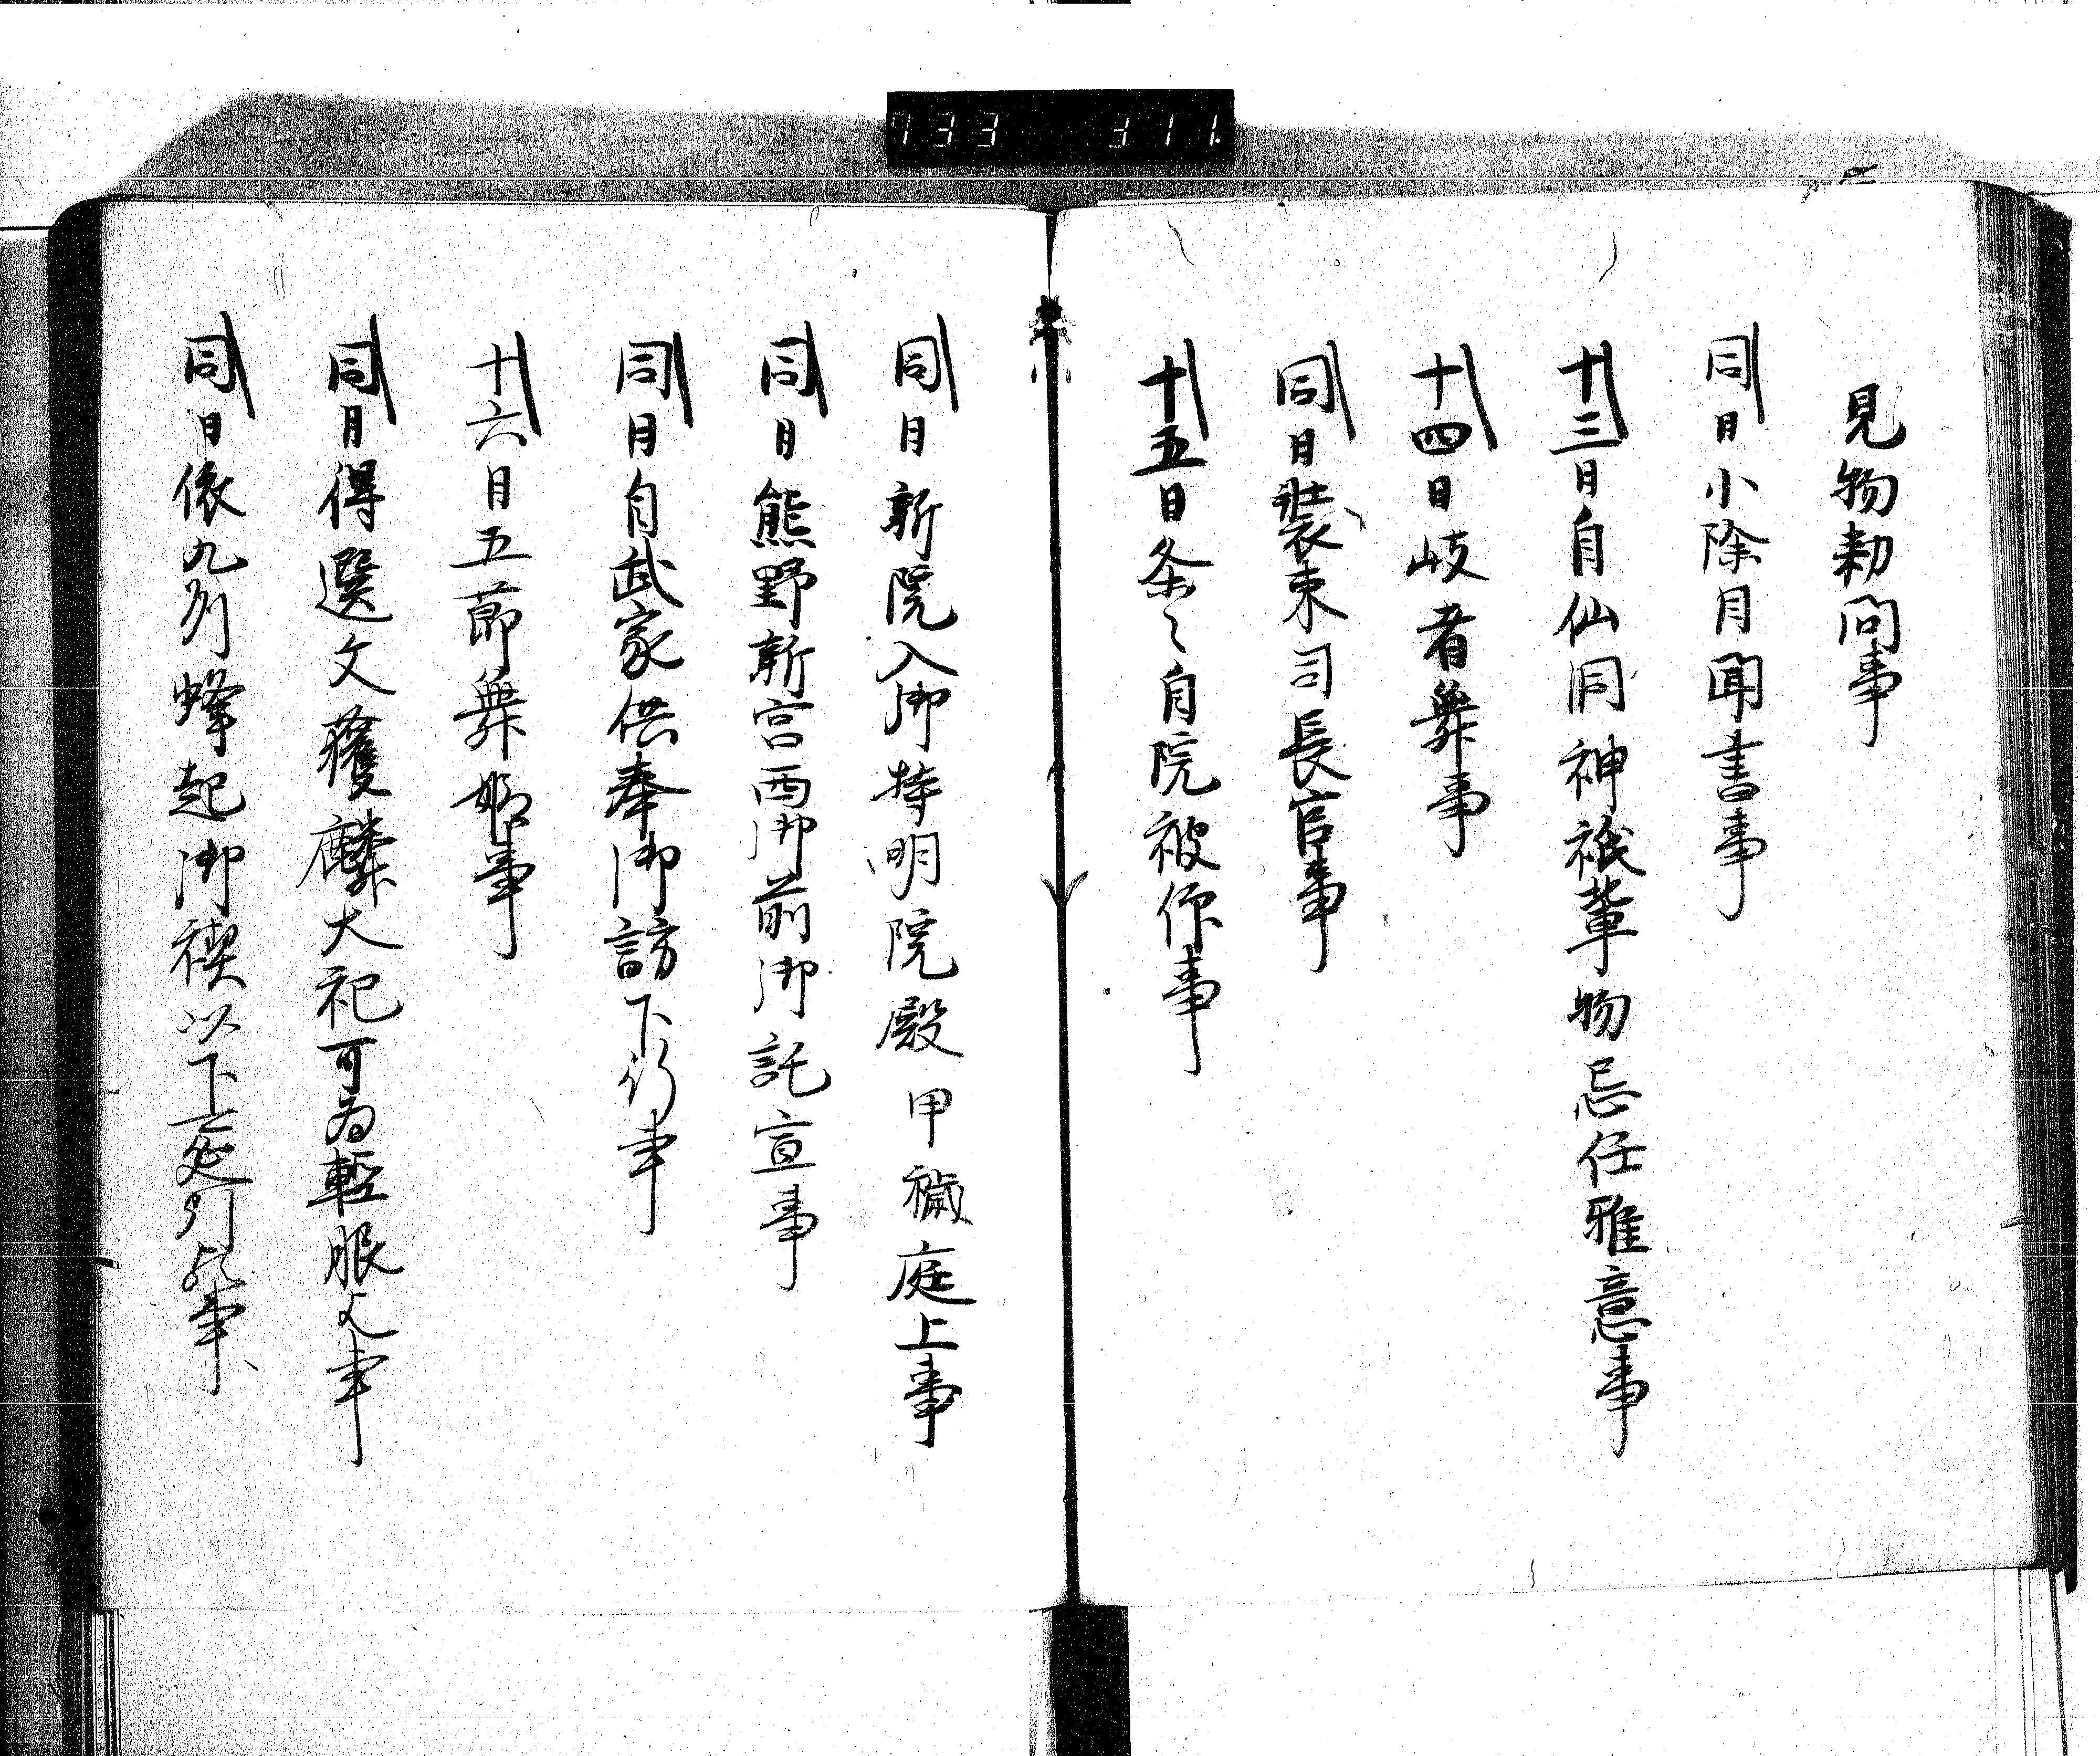 733 311.
見物勅問事
同日小除目聞書事
十三日自仙洞神祇輩物忌任雅意事
十四日岐者舞事
同日装束司長官事
十五日条々自院被仰事
同日新院入御持明院殿甲穢庭上事
同日熊野新宮西御前御託宣事
同日自武家供奉御訪下行事
十六日五節舞姫事
同日得選文獲麟大祀可為軽服之事
同日依九列蜂起御禊以下延引事